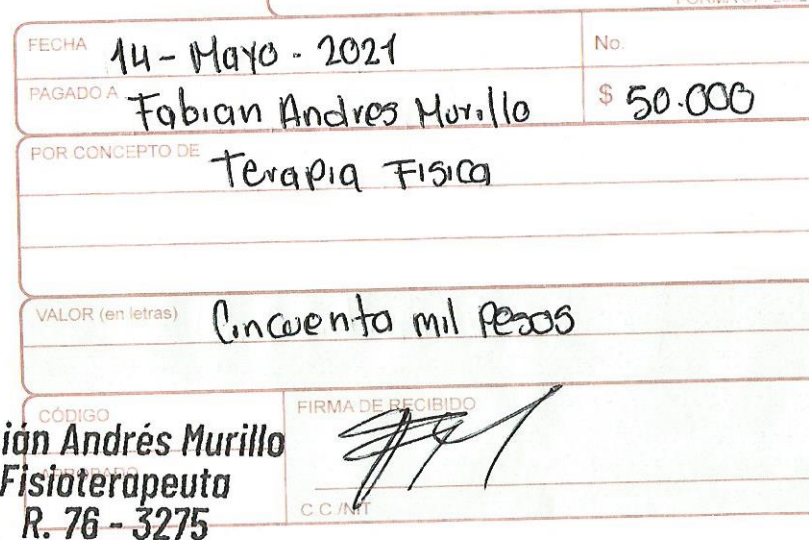 FECHA 14 - Mayo - 2021 No.
PAGADO A Fabian Andres Murillo $ 50.000
POR CONCEPTO DE Terapia Fisica
VALOR (en letras) Cincuenta mil pesos
CÓDIGO FIRMA DE RECIBIDO
ián Andrés Murillo
APROBADO
Fisioterapeuta
R. 76 - 3275
C.C./NIT